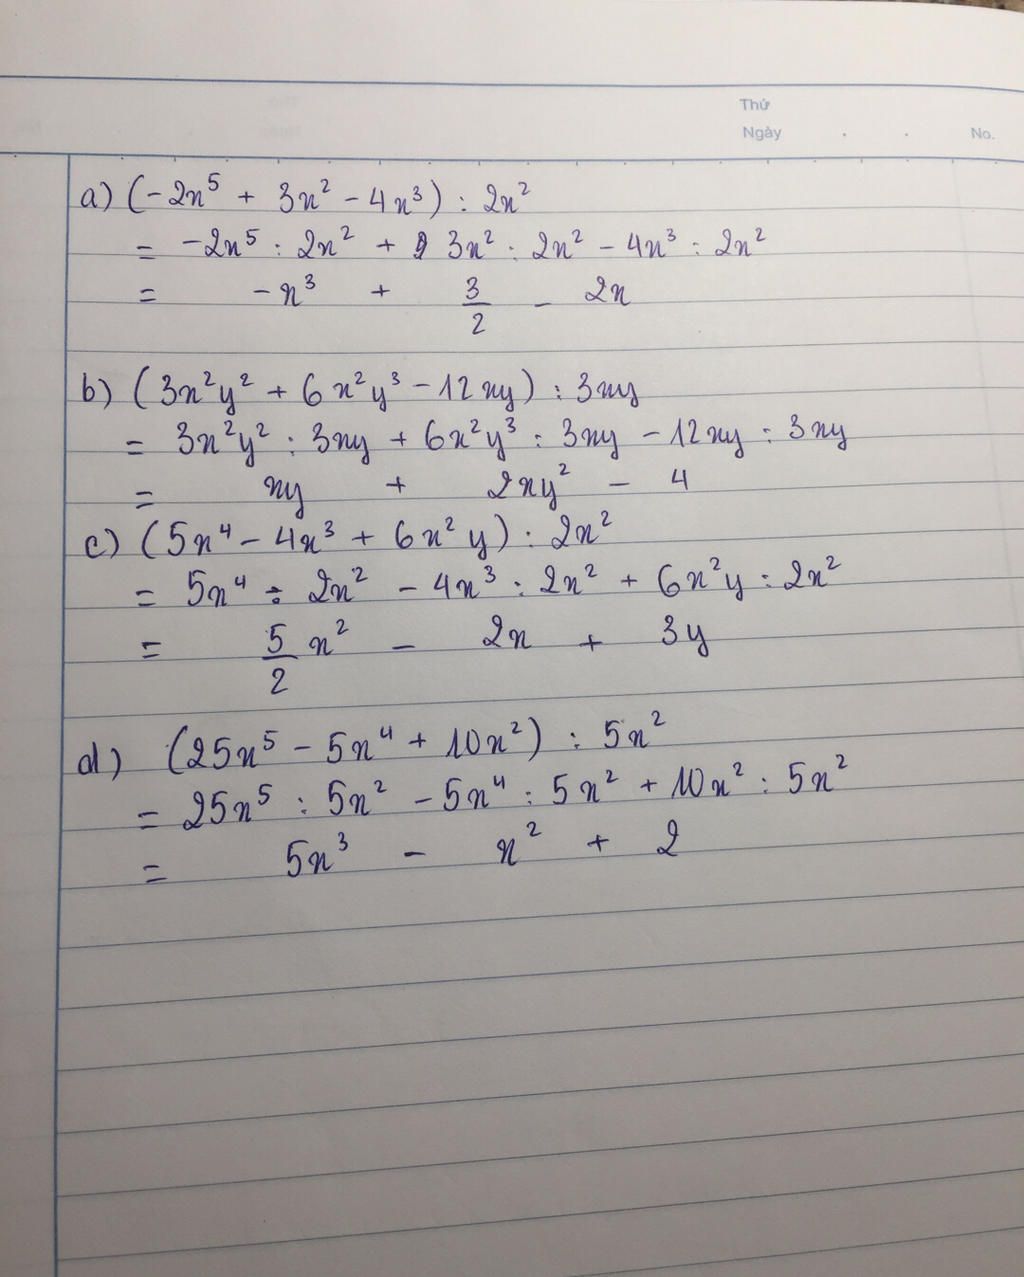 Thứ
Ngày . . No.
a) (-2x⁵ + 3x² - 4x³) : 2x²
= -2x⁵ : 2x² + 3x² : 2x² - 4x³ : 2x²
= -x³ + 3/2 - 2x
b) (3x²y² + 6x²y³ - 12xy) : 3xy
= 3x²y² : 3xy + 6x²y³ : 3xy - 12xy : 3xy
= xy + 2xy² - 4
c) (5x⁴ - 4x³ + 6x²y) : 2x²
= 5x⁴ : 2x² - 4x³ : 2x² + 6x²y : 2x²
= 5/2 x² - 2x + 3y
d) (25x⁵ - 5x⁴ + 10x²) : 5x²
= 25x⁵ : 5x² - 5x⁴ : 5x² + 10x² : 5x²
= 5x³ - x² + 2